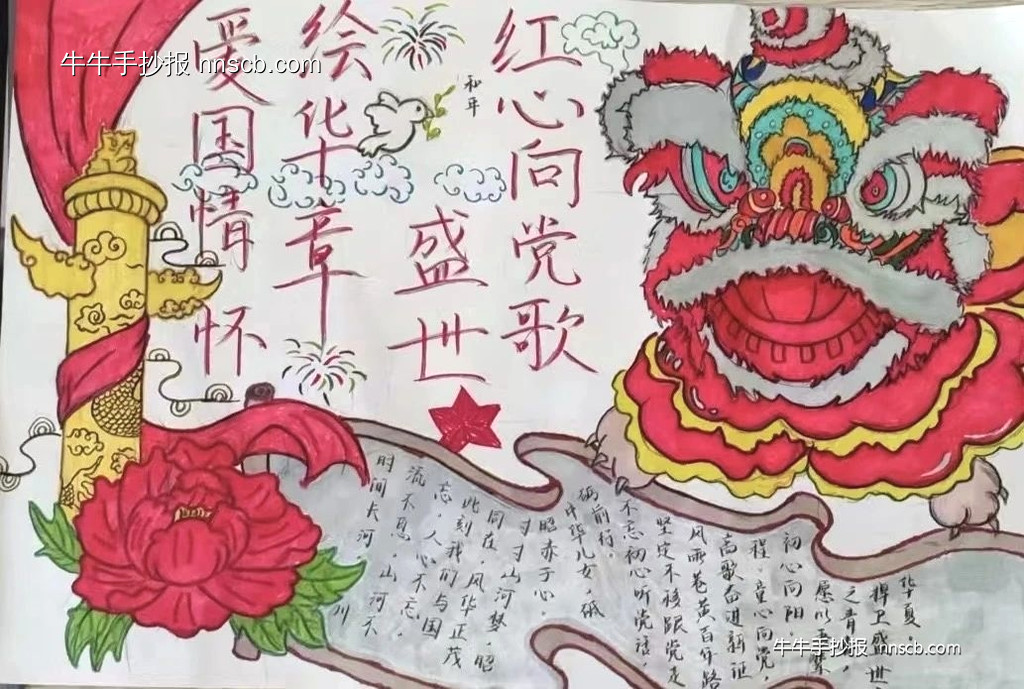 牛牛手抄报 nnscb.com
红心向党歌
盛世
绘华章
爱国情怀
和平
时间大河川
流不息,山河不
忘,人心不忘。
此刻我们与国
同在,风华正茂
寸寸山河梦,昭
昭赤子心。
中华儿女,砥
砺前行。
不忘初心听党话,
坚定不移跟党走
风雨苍黄百年路
高歌奋进新征
程。童心向党,
初心向阳
愿以吾辈
之青春,
捍卫盛世
华夏。
牛牛手抄报 nnscb.com